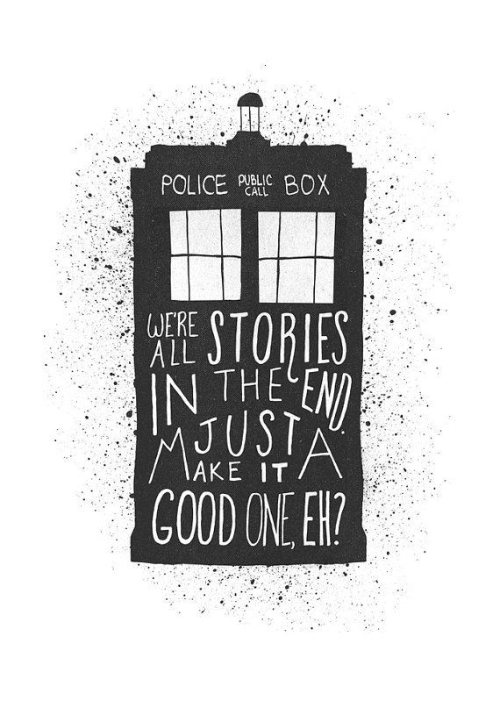 POLICE PUBLIC CALL BOX
WE'RE ALL STORIES
IN THE END.
JUST
MAKE IT A
GOOD ONE, EH?